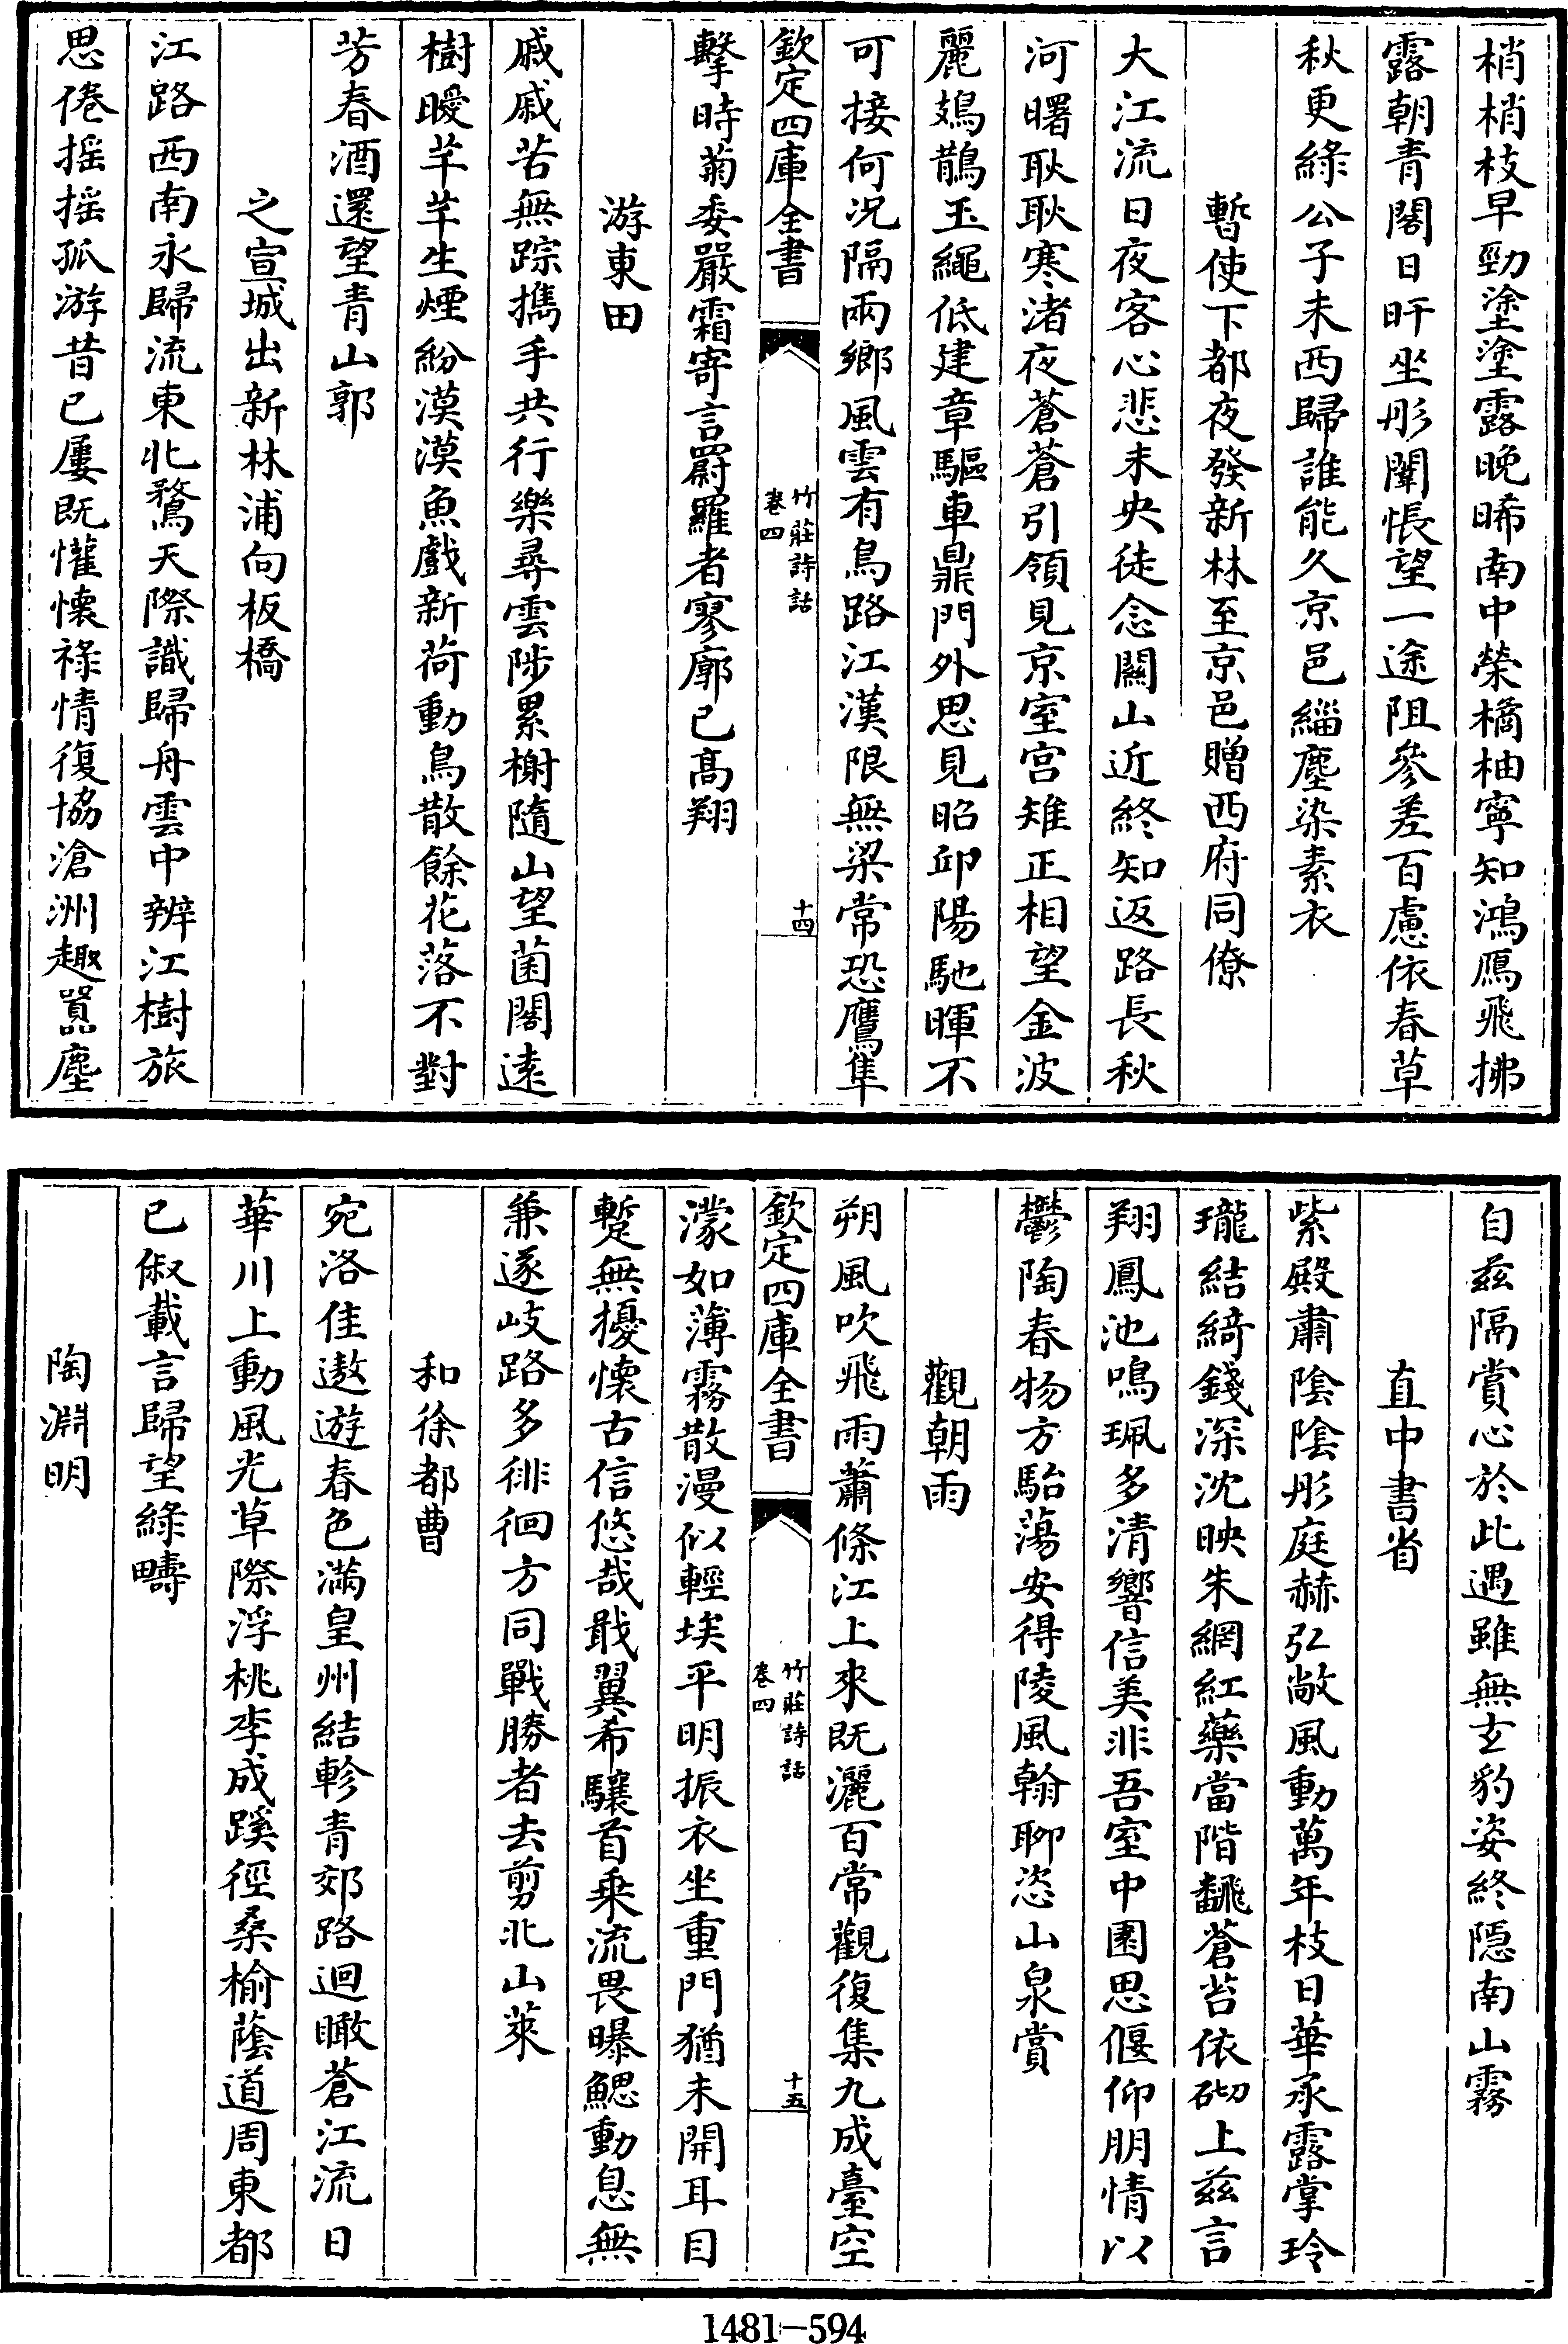 梢梢枝早勁塗塗露晚晞南中榮橘柚寧知鴻鴈飛拂
露朝青閣日旰坐彤闈悵望一途阻參差百慮依春草
秋更綠公子未西歸誰能久京邑緇塵染素衣
暫使下都夜發新林至京邑贈西府同僚
大江流日夜客心悲未央徒念關山近終知返路長秋
河曙耿耿寒渚夜蒼蒼引領見京室宮雉正相望金波
麗鳷鵲玉繩低建章驅車鼎門外思見昭邱陽馳暉不
可接何況隔兩鄉風雲有鳥路江漢限無梁常恐鷹隼
欽定四庫全書
竹莊詩話
卷四
十四
擊時菊委嚴霜寄言罻羅者寥廓已高翔
游東田
戚戚苦無踪攜手共行樂尋雲陟累榭隨山望菌閣遠
樹曖芊芊生煙紛漠漠魚戲新荷動鳥散餘花落不對
芳春酒還望青山郭
之宣城出新林浦向板橋
江路西南永歸流東北騖天際識歸舟雲中辨江樹旅
思倦搖搖孤游昔已屢既懽懷祿情復協滄洲趣囂塵
自茲隔賞心於此遇雖無玄豹姿終隱南山霧
直中書省
紫殿肅陰陰彤庭赫弘敞風動萬年枝日華承露掌玲
瓏結綺錢深沈映朱網紅藥當階翻蒼苔依砌上茲言
翔鳳池鳴珮多清響信美非吾室中園思偃仰朋情以
鬱陶春物方駘蕩安得陵風翰聊恣山泉賞
觀朝雨
朔風吹飛雨蕭條江上來既灑百常觀復集九成臺空
欽定四庫全書
竹莊詩話
卷四
十五
濛如薄霧散漫似輕埃平明振衣坐重門猶未開耳目
蹔無擾懷古信悠哉戢翼希驤首乗流畏曝鰓動息無
兼遂岐路多徘徊方同戰勝者去剪北山萊
和徐都曹
宛洛佳遨遊春色滿皇州結軫青郊路迴瞰蒼江流日
華川上動風光草際浮桃李成蹊徑桑榆蔭道周東都
已俶載言歸望綠疇
陶淵明
1481-594